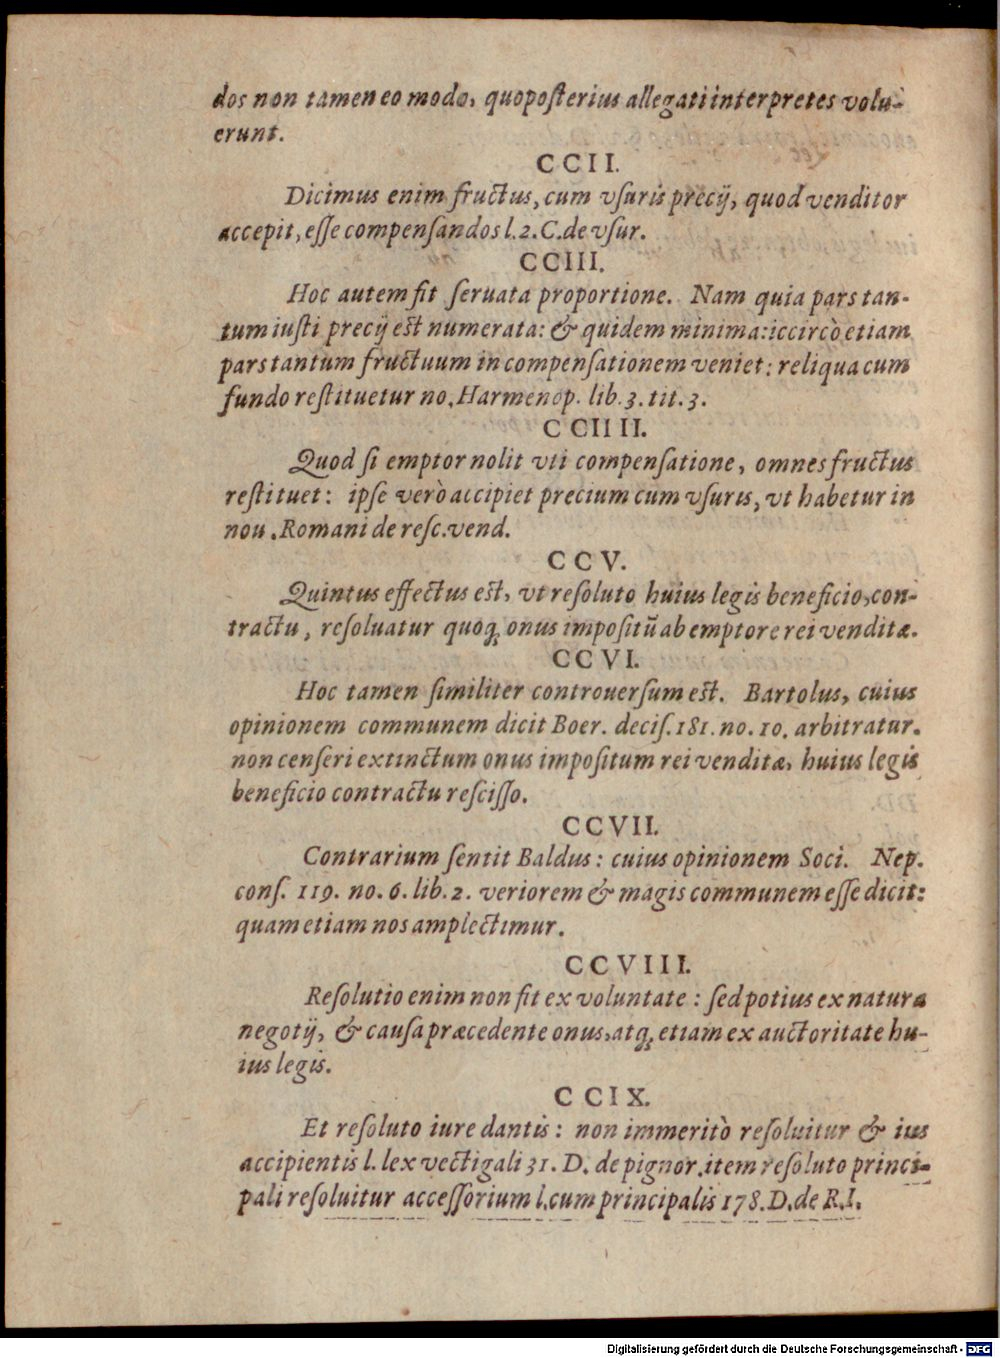 dos non tamen eo modo, quo posterius allegati interpretes volu-
erunt.
CCII.
Dicimus enim fructus, cum vsuris precij, quod venditor
accepit, esse compensandos l. 2. C. de vsur.
CCIII.
Hoc autem fit seruata proportione. Nam quia pars tan-
tum iusti precij est numerata: & quidem minima: iccircò etiam
pars tantum fructuum in compensationem veniet: reliqua cum
fundo restituetur no. Harmenop. lib. 3. tit. 3.
CCIIII.
Quod si emptor nolit vti compensatione, omnes fructus
restituet: ipse verò accipiet precium cum vsuris, vt habetur in
nou. Romani de resc. vend.
CCV.
Quintus effectus est, vt resoluto huius legis beneficio, con-
tractu, resoluatur quoq; onus impositũ ab emptore rei venditæ.
CCVI.
Hoc tamen similiter controuersum est. Bartolus, cuius
opinionem communem dicit Boer. decis. 181. no. 10. arbitratur.
non censeri extinctum onus impositum rei venditæ, huius legis
beneficio contractu rescisso.
CCVII.
Contrarium sentit Baldus: cuius opinionem Soci. Nep.
cons. 119. no. 6. lib. 2. veriorem & magis communem esse dicit:
quam etiam nos amplectimur.
CCVIII.
Resolutio enim non fit ex voluntate: sed potius ex natura
negotij, & causa præcedente onus, atq; etiam ex auctoritate hu-
ius legis.
CCIX.
Et resoluto iure dantis: non immeritò resoluitur & ius
accipientis l. lex vectigali 31. D. de pignor. item resoluto princi-
pali resoluitur accessorium l. cum principalis 178. D. de R. I.
Digitalisierung gefördert durch die Deutsche Forschungsgemeinschaft - DFG